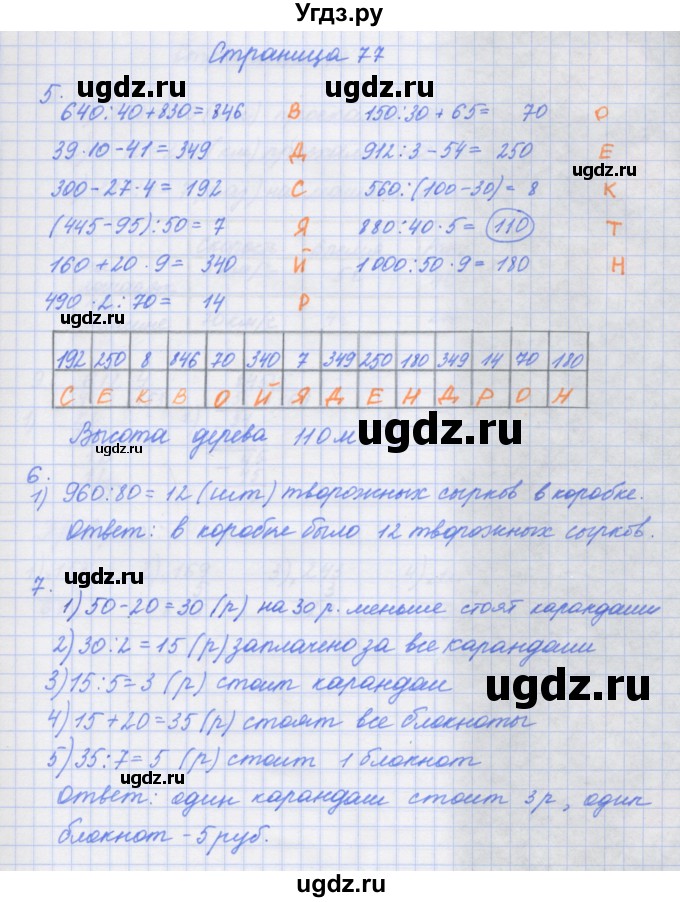 Угдз.ру
Страница 77
ugdz.ru
5.
640:40+830=846 В 150:30+65= 70 О
ugdz.ru
39·10-41=349 Д 912:3-54=250 Е
ugdz.ru
300-27·4=192 С 560:(100-30)=8 К
(445-95):50=7 Я 880:40·5=110 Т
ugdz.ru
160+20·9=340 Й 1000:50·9=180 Н
490·2:70= 14 Р
192 250 8 846 70 340 7 349 250 180 349 14 70 180
С Е К В О Й Я Д Е Н Д Р О Н
Высота дерева 110м
ugdz.ru
ugdz.ru
6.
1) 960:80=12 (шт) творожных сырков в коробке.
Ответ: в коробке было 12 творожных сырков.
ugdz.ru
7.
1) 50-20=30 (р) на 30 р. меньше стоят карандаши
2) 30:2=15 (р) заплачено за все карандаши
3) 15:5=3 (р) стоит карандаш
ugdz.ru
4) 15+20=35 (р) стоят все блокноты
5) 35:7=5 (р) стоит 1 блокнот
ugdz.ru
Ответ: один карандаш стоит 3р, один
блокнот - 5руб.
ugdz.ru